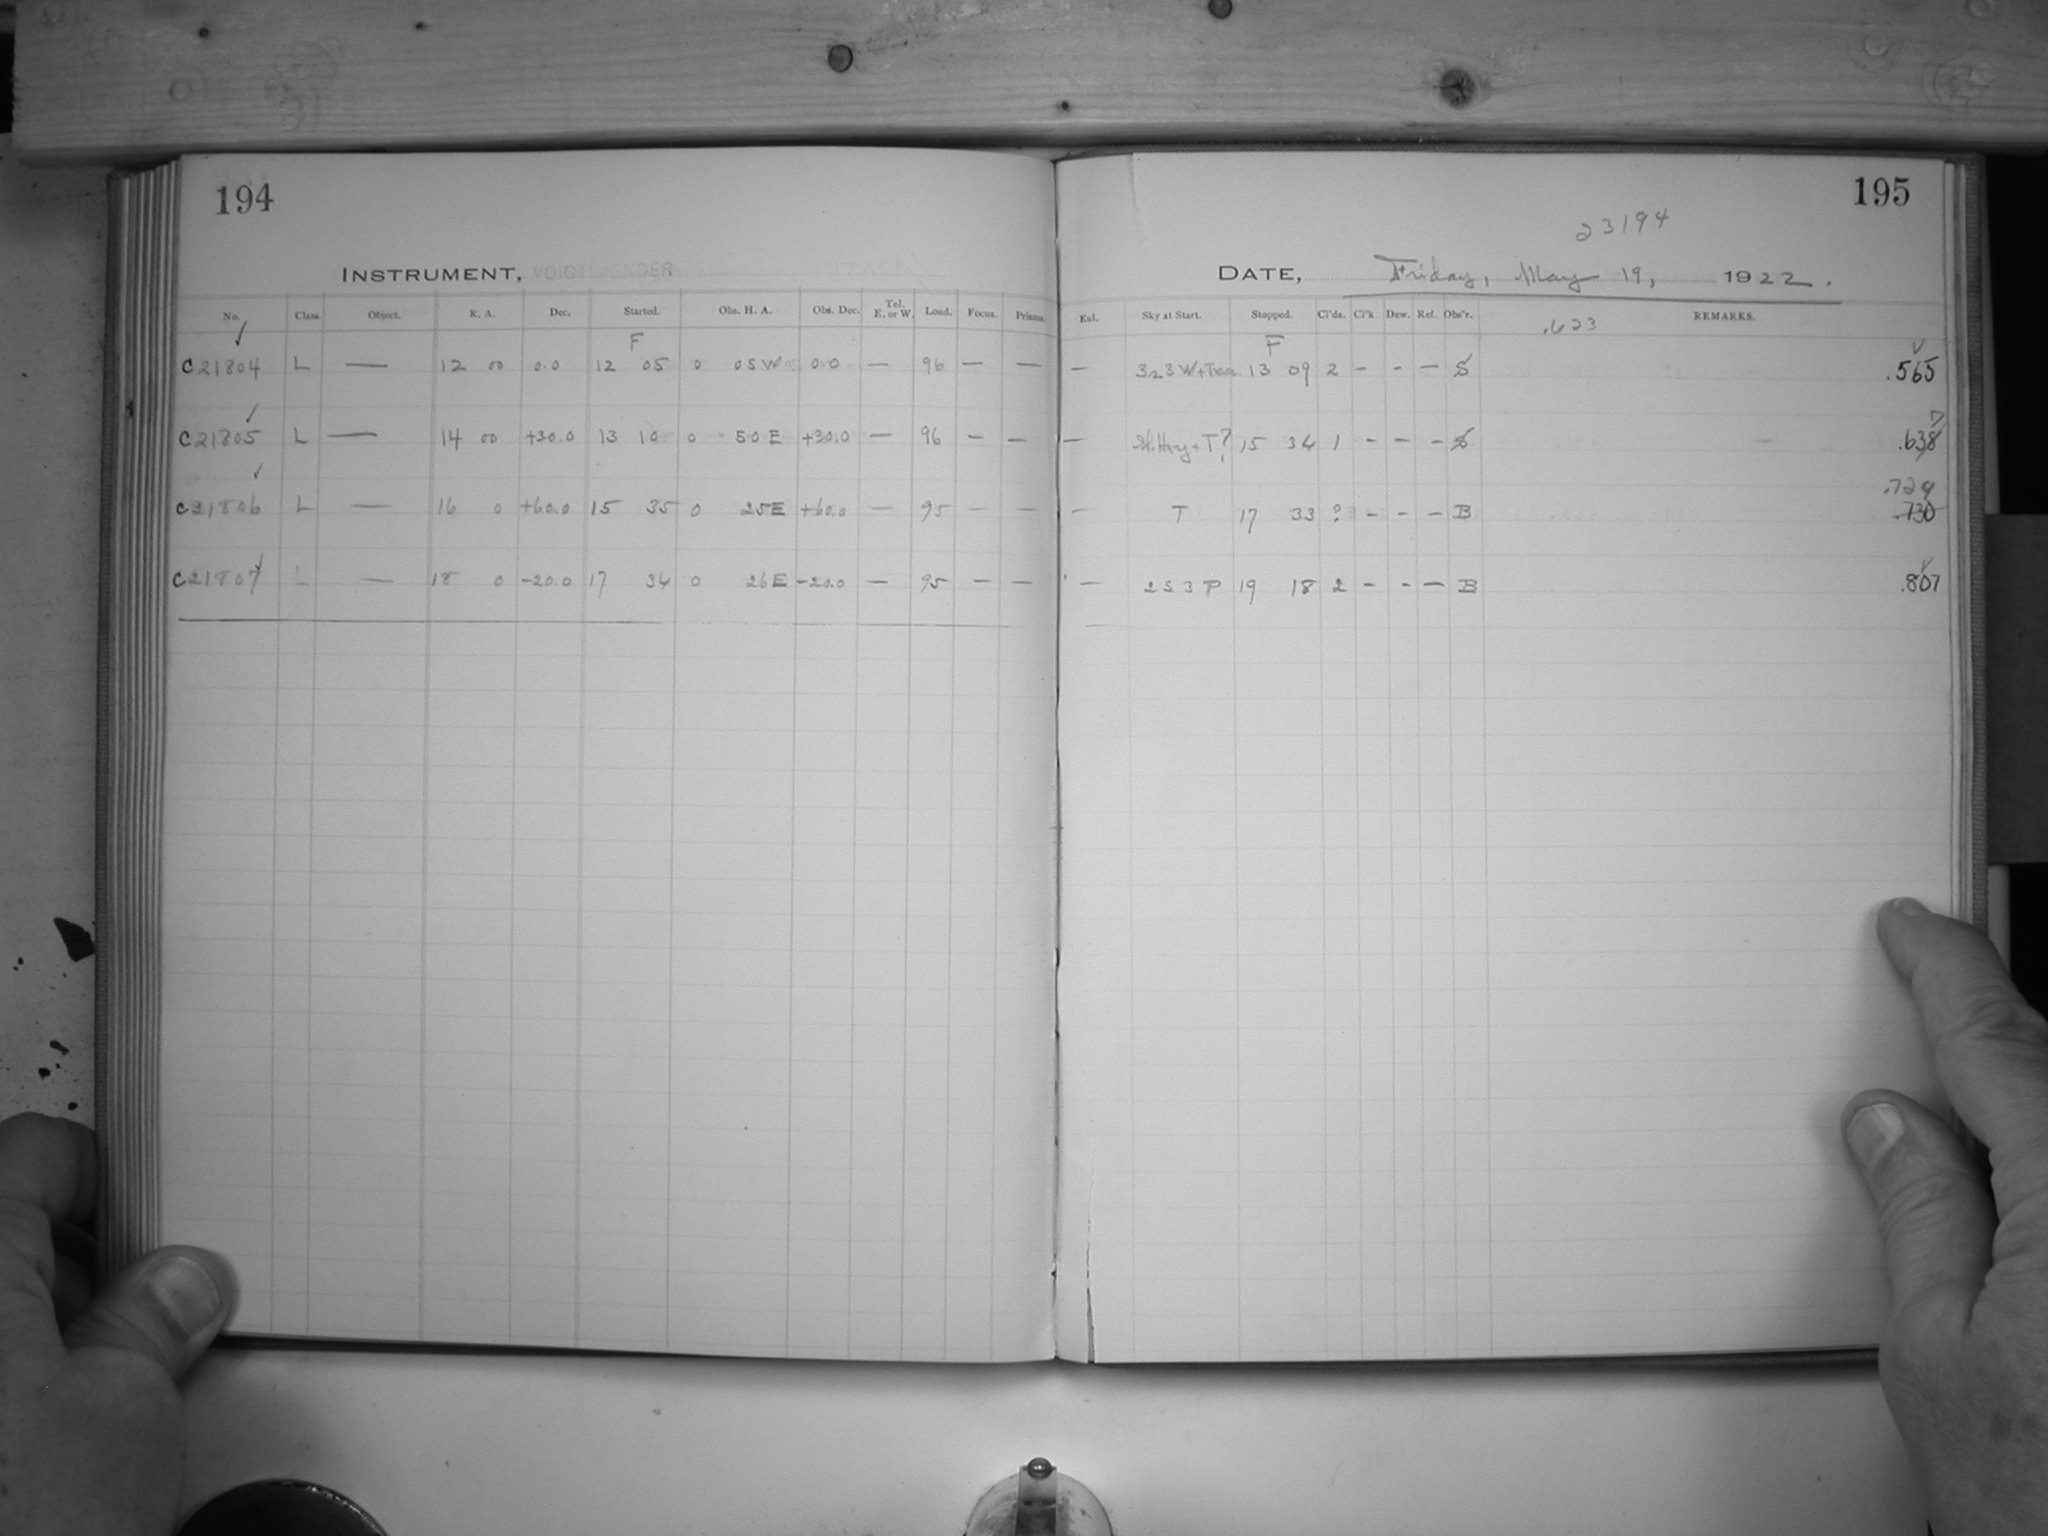 194
INSTRUMENT, VOIGTLAENDER
No. Class. Object. R. A. Dec. Started. Obs. H. A. Obs. Dec. Tel. E. or W. Load. Focus. Prisms.
F
C21804 L — 12 00 0.0 12 05 0 05 W 0.0 — 96 — —
C21805 L — 14 00 +30.0 13 10 0 50 E +30.0 — 96 — —
C21806 L — 16 0 +60.0 15 35 0 25 E +60.0 — 95 — —
C21807 L — 18 0 -20.0 17 34 0 26 E -20.0 — 95 — —
195
23194
DATE, Friday, May 19, 1922.
Eul. Sky at Start. Stopped. Cl'ds. Cl'k. Dew. Ref. Obs'r. REMARKS.
.623
F
— 323 W + 13 09 2 - - — S .565
— + T? 15 34 1 - — - S .638
.729
— T 17 33 ? - - - B .730
— 2 S 3 P 19 18 2 - - — B .807